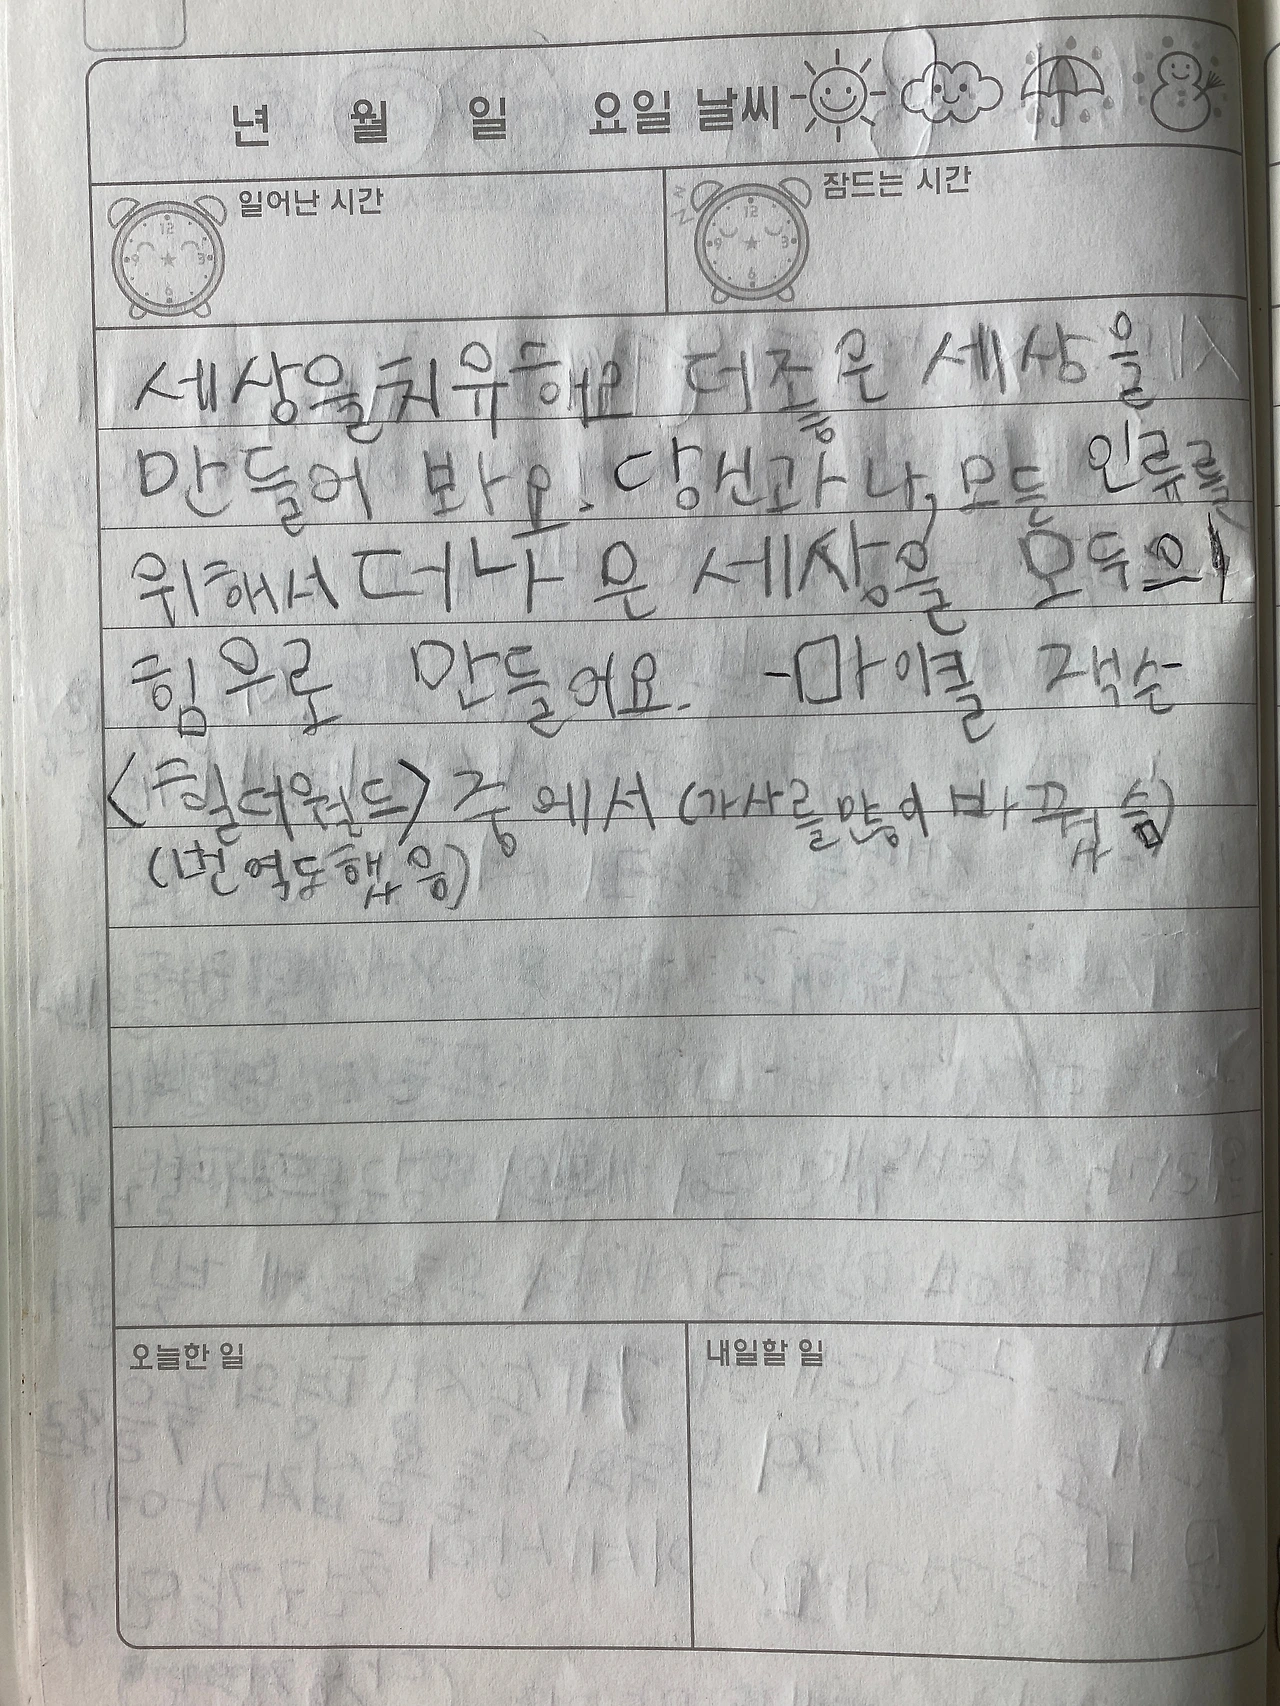 년 월 일 요일 날씨
일어난 시간 잠드는 시간
12
9 3
6
12
9 3
6
세상을치유해요 더좋은 세상을
만들어 봐요. 당신과 나, 모든 인류를
위해서 더나은 세상을 모두의
힘우로 만들어요. -마이클 잭슨-
<힐더월드> 중에서 (가사를많이 바꿨슴)
(번역도했음)
오늘한 일 내일할 일